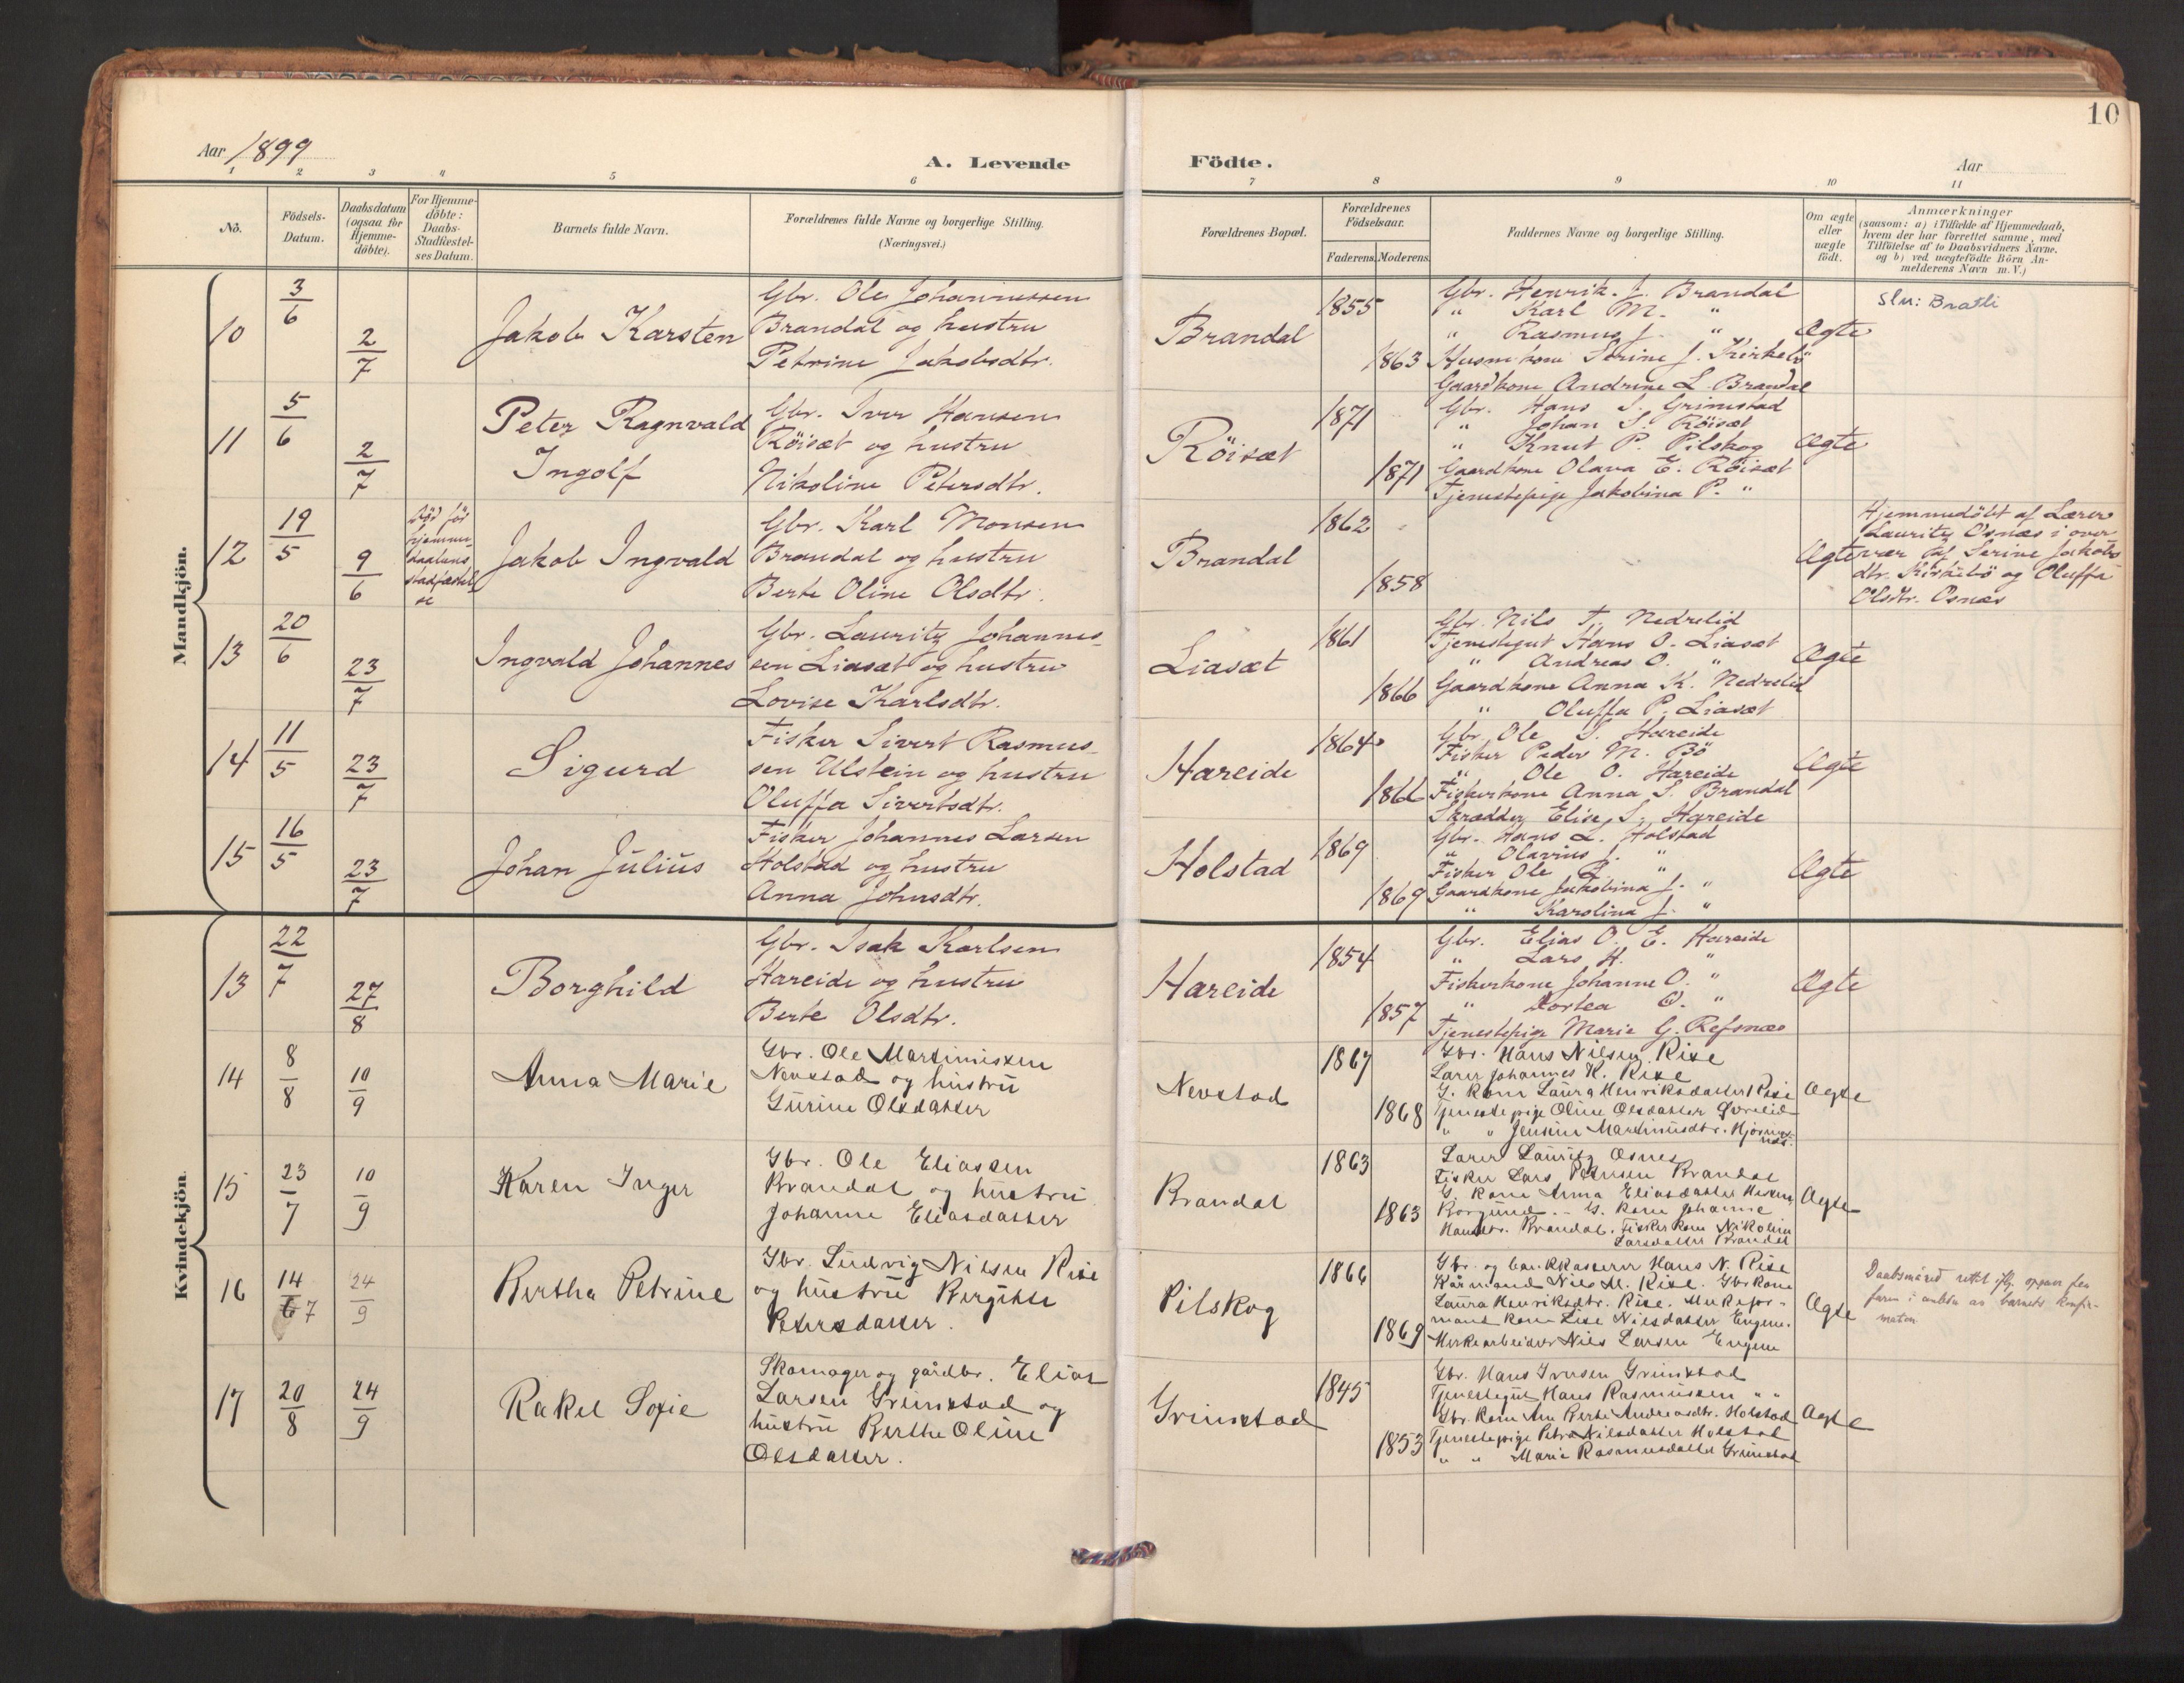 10
Aar 1899
A. Levende
Födte.
Aar
1 2 3 4 5 6 7 8 9 10 11
Nö.
Födsels-
Datum.
Daabsdatum
(ogsaa for
Hjemme-
döbte).
For Hjemme-
döbte:
Daabs-
Stadfæstel-
ses Datum.
Barnets fulde Navn.
Forældrenes fulde Navne og borgerlige Stilling.
(Næringsvei.)
Forældrenes Bopæl.
Forældrenes
Födselsaar.
Faderens. Moderens.
Faddernes Navne og borgerlige Stilling.
Om ægte
eller
uægte
födt.
Anmærkninger
(saasom: a) i Tilfælde af Hjemmedaab,
hvem der har forrettet samme, med
Tilföielse af to Daabsvidners Navne.
og b) ved uægtefödte Börn An-
melderens Navn m. V.)
Mandkjön.
10
3/6
2/7
Jakob Karsten
Gbr. Ole Johannessen
Brandal og hustru
Petrine Jakobsdtr.
Brandal
1855
1863
Gbr. Henrik J. Brandal
" Karl M. "
" Rasmus J. "
Husm.kone Serine J. Kirkebö
Gaardkone Andrine L. Brandal
Ægte
Sln: Bratli
11
5/6
2/7
Peter Ragnvald
Ingolf
Gbr. Iver Hansen
Röisæt og hustru
Nikoline Petersdtr.
Röisæt
1871
1871
Gbr. Hans S. Grimstad
" Johan S. Röisæt
" Knut P. Pilskog
Gaardkone Olava E. Röisæt
Tjenestepige Jakobina P. "
Ægte
12
19/5
9/6
Död för
hjemme-
daabens
stadfæstel
se
Jakob Ingvald
Gbr. Karl Monsen
Brandal og hustru
Berte Oline Olsdtr.
Brandal
1862
1858
Ægte
Hjemmedöbt af Lærer
Lauritz Osnæs i over-
vær af Serine Jakobs
dtr. Kirkebö og Oluffa
Olsdtr. Osnæs
13
20/6
23/7
Ingvald Johannes
Gbr. Lauritz Johannes-
sen Liasæt og hustru
Lovise Karlsdtr.
Liasæt
1861
1866
Gbr. Nils T. Nedrelid
Tjenestegut Hans O. Liasæt
" Andreas O. "
Gaardkone Anna K. Nedrelid
" Oluffa P. Liasæt
Ægte
14
11/5
23/7
Sigurd
Fisker Sivert Rasmus-
sen Ulstein og hustru
Oluffa Sivertsdtr.
Hareide
1864
1866
Gbr. Ole S. Hareide
Fisker Peder M. Bö
" Ole O. Hareide
Fiskerkone Anna S. Brandal
Skrædder Elise S. Hareide
Ægte
15
16/5
23/7
Johan Julius
Fisker Johannes Larsen
Holstad og hustru
Anna Johnsdtr.
Holstad
1869
1869
Gbr. Hans L. Holstad
" Olavius J. "
Fisker Ole L. "
Gaardkone Jakobina J. "
" Karolina J. "
Ægte
Kvindekjön.
13
22/7
27/8
Borghild
Gbr. Isak Karlsen
Hareide og hustru
Berte Olsdtr.
Hareide
1854
1857
Gbr. Elias O. E. Hareide
" Lars H. "
Fiskerkone Johanne O. "
" Dortea O. "
Tjenestepige Marie G. Refsnæs
Ægte
14
8/8
10/9
Anna Marie
Gbr. Ole Martinussen
Nevstad og hustru
Gurine Olsdatter
Nevstad
1867
1868
Gbr. Hans Nilsen Rise
Lærer Johannes K. Rise
G. kone Laura Henriksdatter Rise
Tjenestepige Oline Olsdatter Överlid
" " Jensine Martinusdtr. Hjörung-
næs.
Ægte
15
23/7
10/9
Karen Inger
Gbr. Ole Eliassen
Brandal og hustru
Johanne Eliasdatter
Brandal
1863
1863
Lærer Lauritz Osnes
Fisker Lars Petersen Brandal
G. kone Anna Eliasdatter Hessen,
Borgund. - G. kone Johanne
Hansdtr. Brandal. Fisker kone Nikolina
Larsdatter Brandal
Ægte
16
14/6 7
24/9
Bertha Petrine
Gbr. Ludvig Nilsen Rise
og hustru Bergitte
Petersdatter.
Pilskog
1866
1869
Gbr. og bankkasserer Hans N. Rise
Kårmand Nils M. Rise. Gbrkone
Laura Henriksdtr. Rise.
kone Lise Nilsdatter Engene.
Nils Larsen Engene
Ægte
Daabsmåned rettet iflg. opgave fra
faren i anledn av barnets konfir-
mation
17
20/8
24/9
Rakel Sofie
Skomager og gårdbr. Elias
Larsen Grimstad og
hustru Berthe Oline
Olsdatter.
Grimstad
1845
1853
Gbr. Hans Iversen Grimstad
Tjenestegut Hans Rasmussen " "
Gbr. kone Ane Berte Andreasdtr. Holstad
Tjenestepige Petra Nilsdatter Holstad
" " Marie Rasmusdatter Grimstad
Ægte